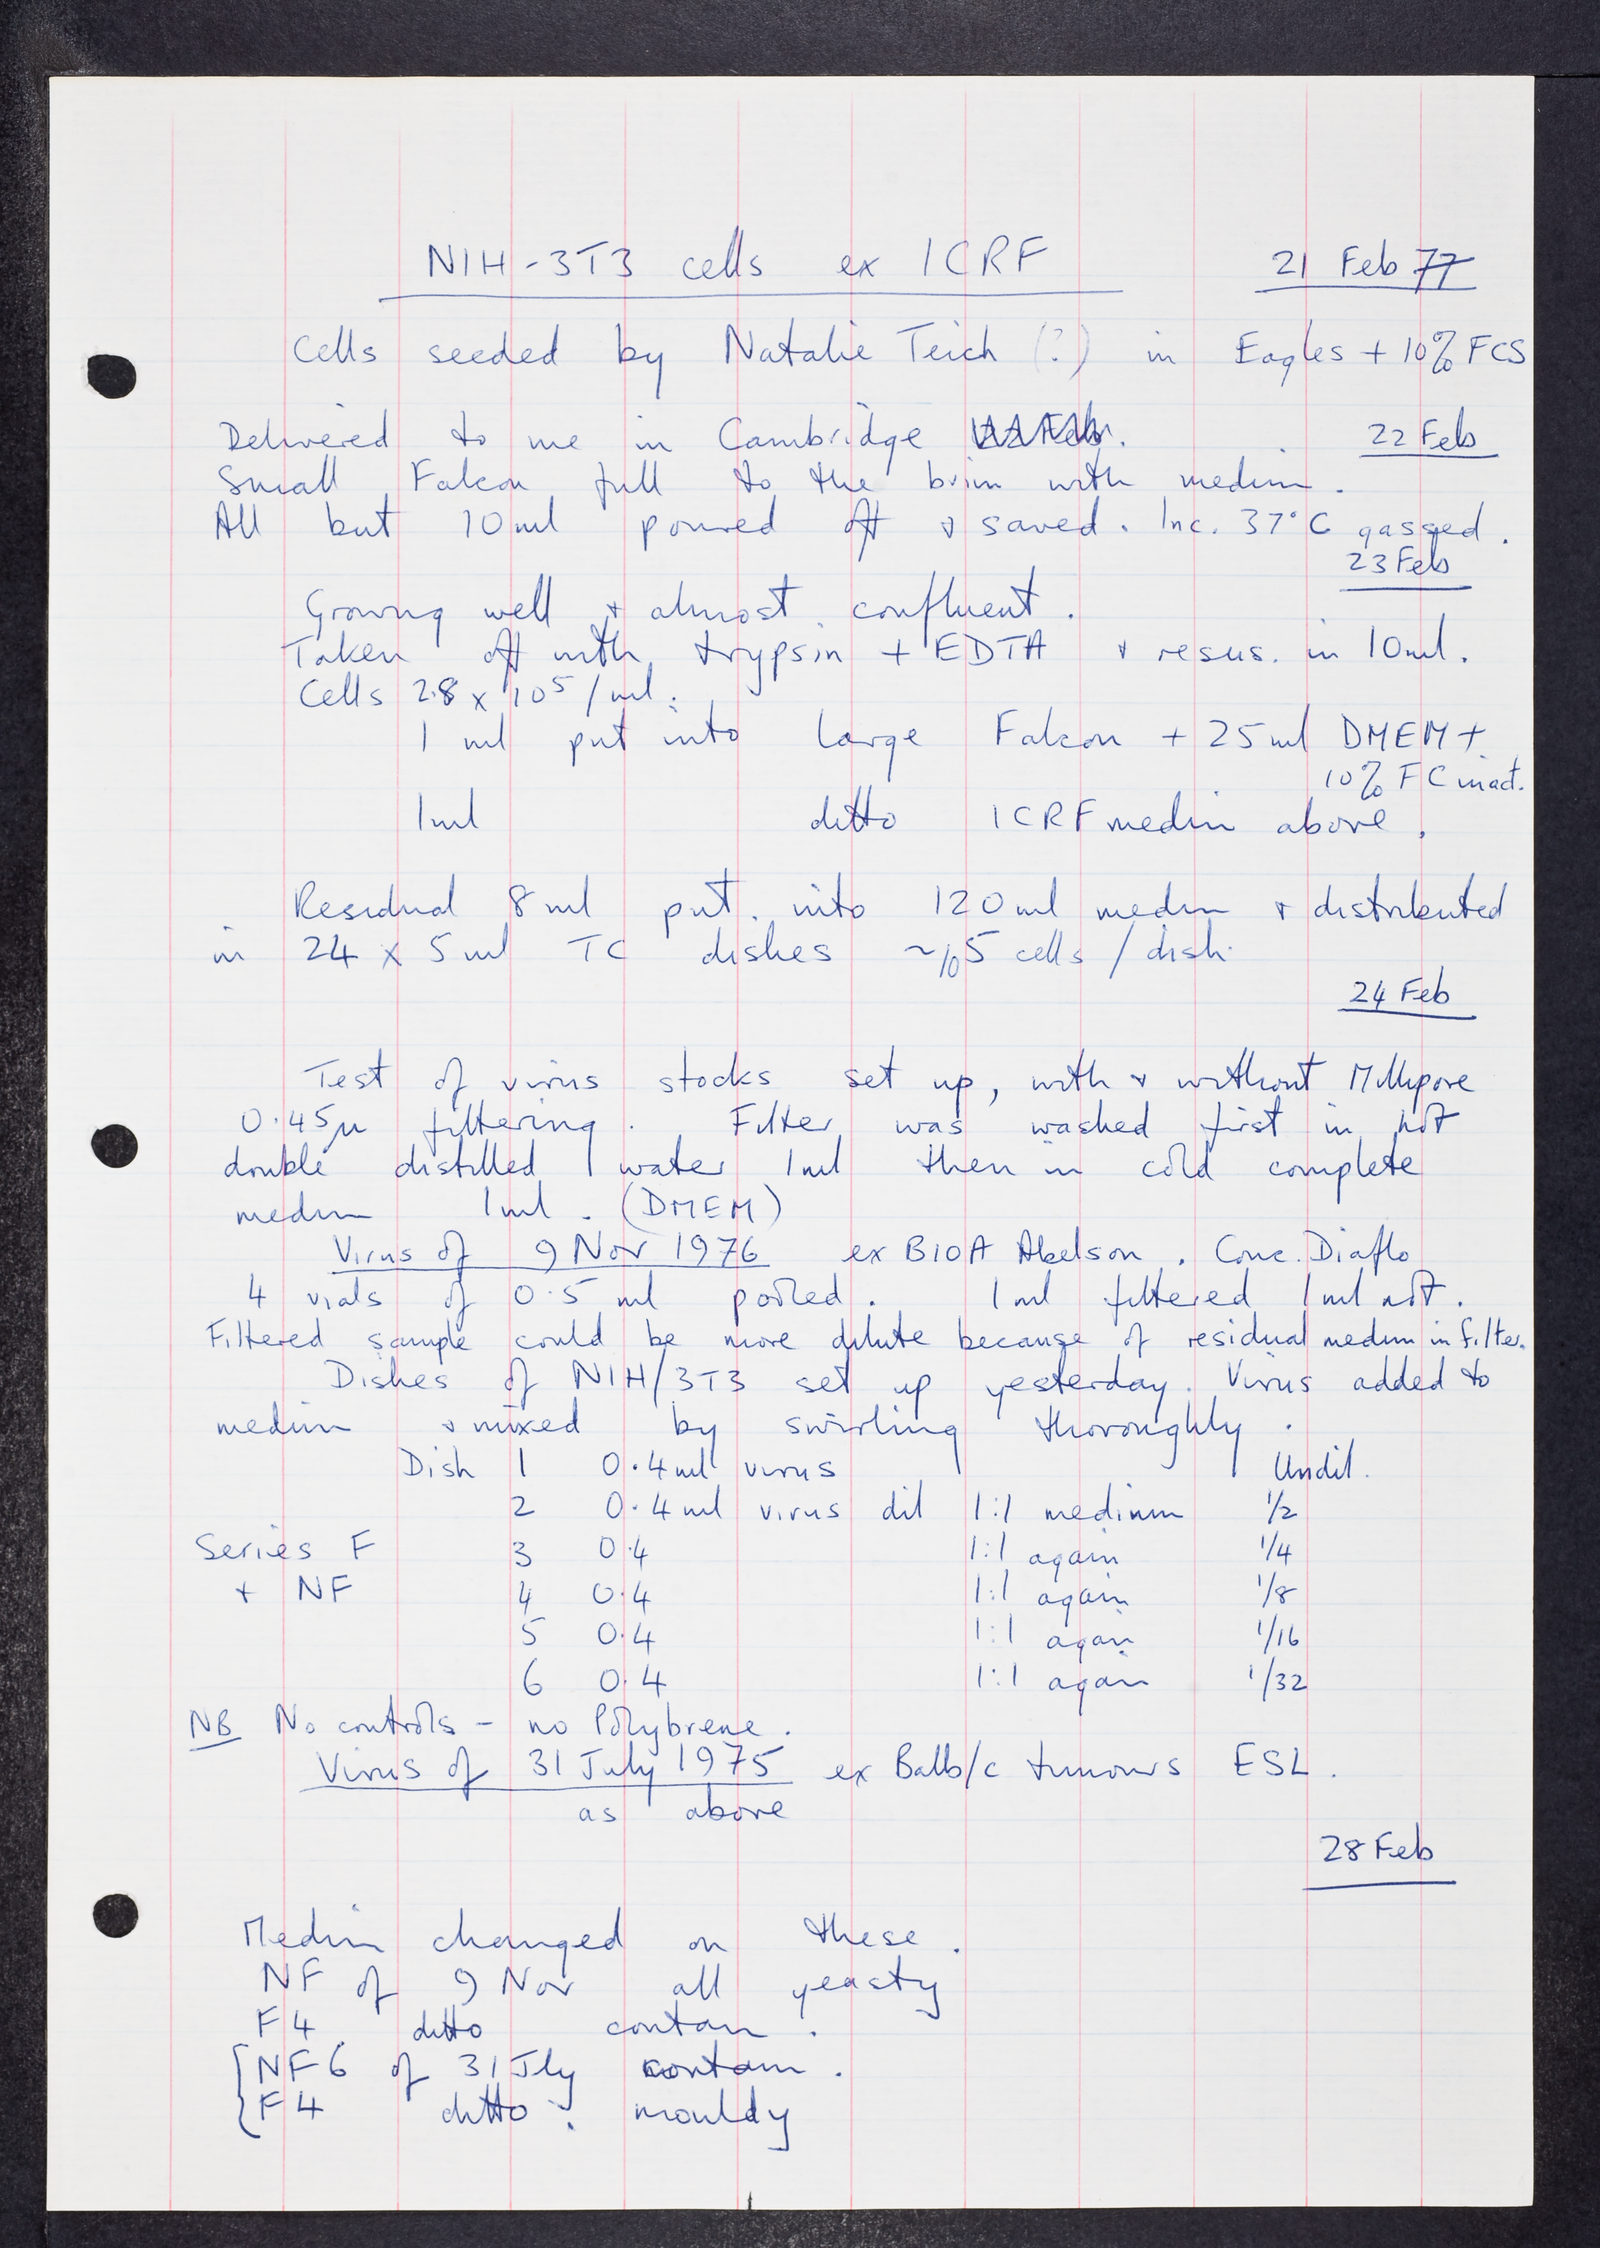 NIH-3T3 cells ex ICRF 21 Feb 77
Cells seeded by Natalie Teich (?) in Eagles + 10% FCS
Delivered to me in Cambridge 22 Feb
Small Falcon full to the brim with medium.
All but 10ml poured off & saved. Inc. 37°C gassed.
23 Feb
Growing well & almost confluent.
Taken off with trypsin + EDTA & resus. in 10ml.
Cells 2.8 x 10⁵/ml.
1 ml put into large Falcon + 25ml DMEM +
10% FC inact.
1ml ditto ICRF medium above.
Residual 8ml put into 120ml medium & distributed
in 24 x 5ml TC dishes ~10⁵ cells/dish.
24 Feb
Test of virus stocks set up, with & without Millipore
0.45µ filtering. Filter was washed first in hot
double distilled water 1ml then in cold complete
medium 1ml. (DMEM)
Virus of 9 Nov 1976 ex B10A Abelson. Conc. Diaflo
4 vials of 0.5 ml pooled. 1ml filtered 1ml not.
Filtered sample could be more dilute because of residual medium in filter.
Dishes of NIH/3T3 set up yesterday. Virus added to
medium & mixed by swirling thoroughly.
Dish 1 0.4ml virus Undil.
2 0.4ml virus dil 1:1 medium 1/2
Series F 3 0.4 1:1 again 1/4
+ NF 4 0.4 1:1 again 1/8
5 0.4 1:1 again 1/16
6 0.4 1:1 again 1/32
NB No controls - no Polybrene.
Virus of 31 July 1975 ex Balb/c tumours ESL.
as above
28 Feb
Medium changed on these.
NF of 9 Nov all yeasty
F4 ditto contam.
NF6 of 31 Jly contam.
F4 ditto. mouldy